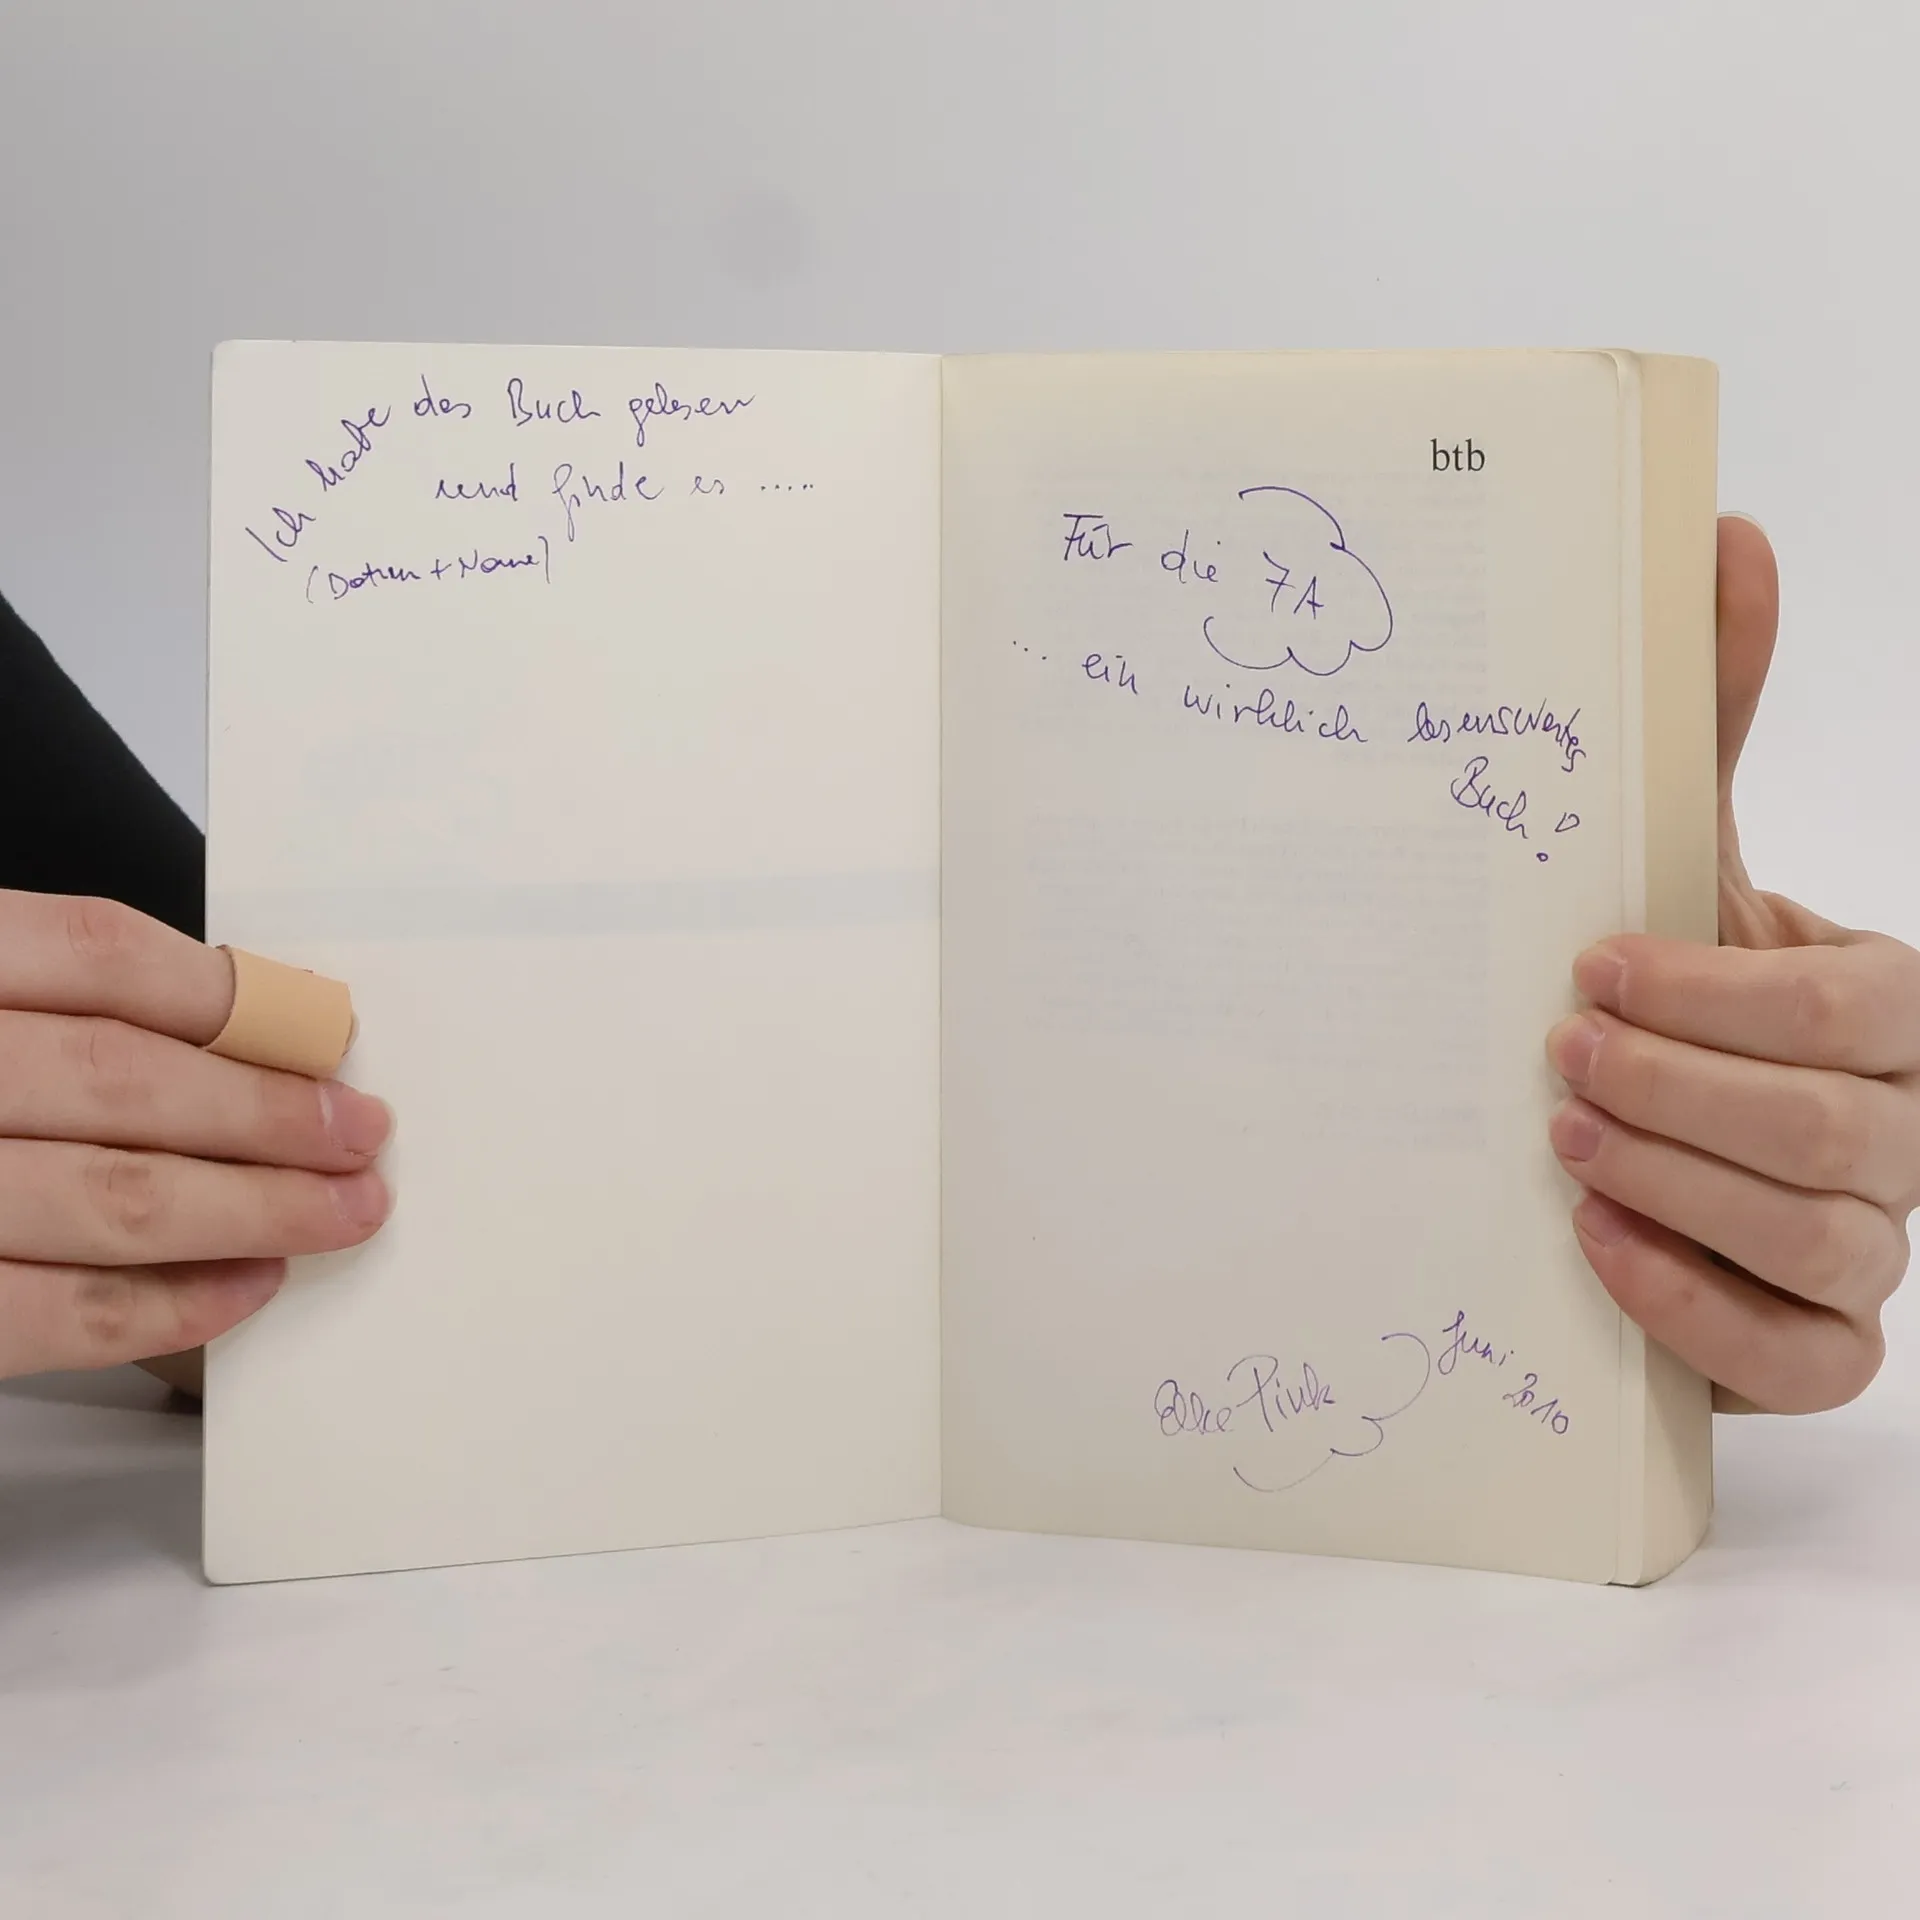 Ich habe das Buch gelesen
und finde es .....
(Datum + Name)
btb
Für die 7A
... ein wirklich lesenswertes
Buch!
Elke Pink
Juni
2010